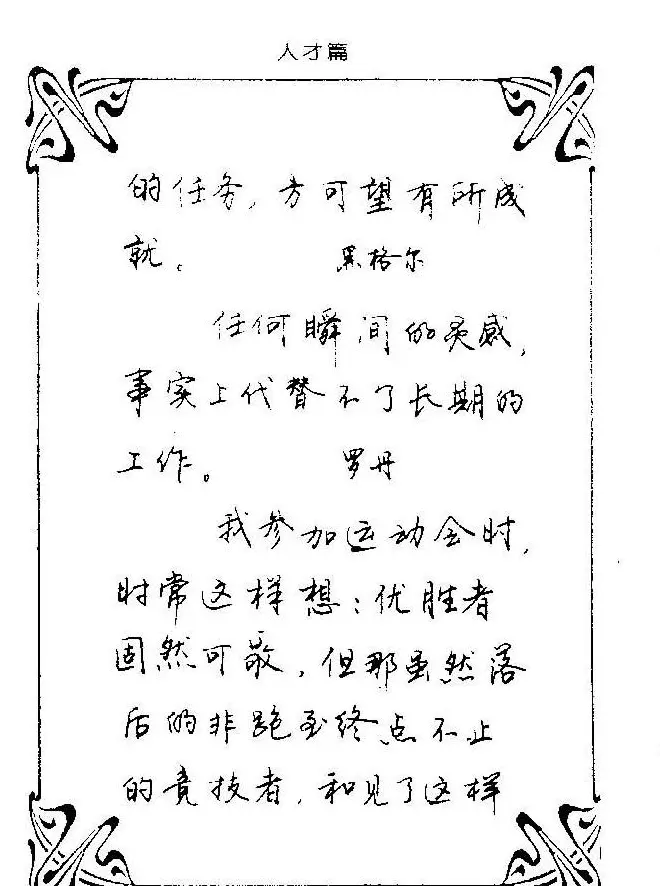 人才篇
的任务,方可望有所成
就。 黑格尔
任何瞬间的灵感,
事实上代替不了长期的
工作。 罗丹
我参加运动会时,
时常这样想:优胜者
固然可敬,但那虽然落
后的非跑至终点不止
的竞技者,和见了这样